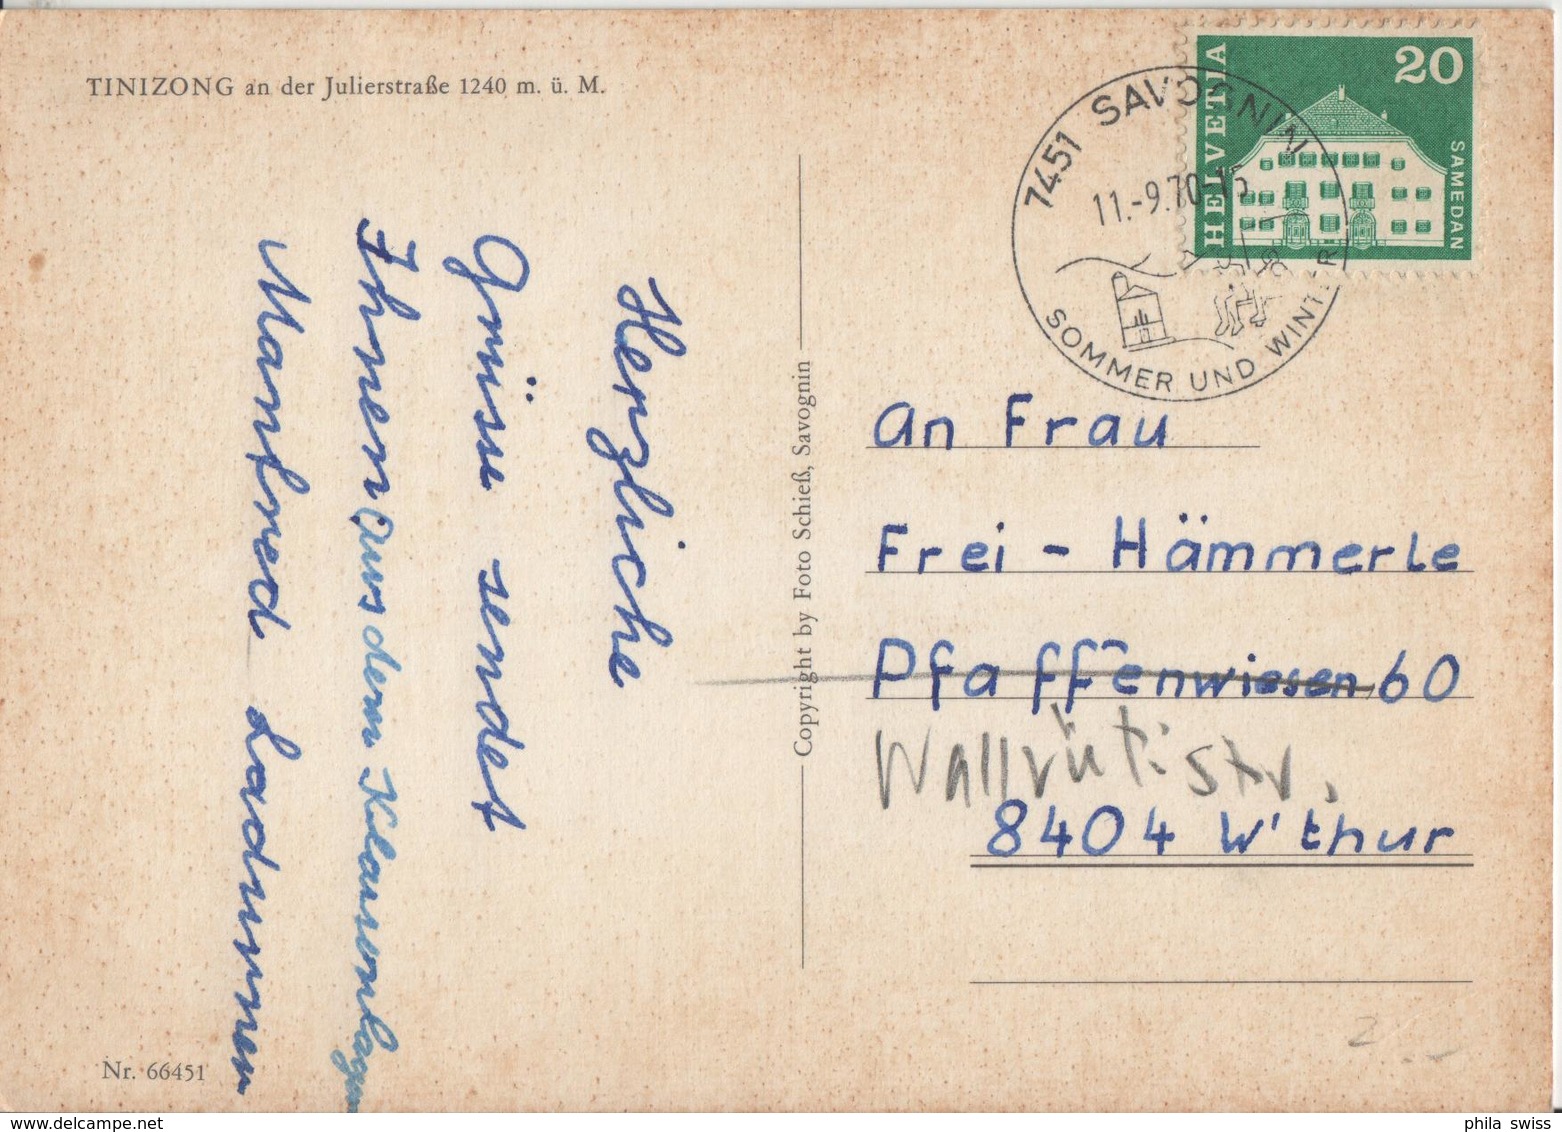 TINIZONG an der Julierstraße 1240 m. ü. M.
HELVETIA
20
SAMEDAN
7451 SAVOGNIN
11.-9.70-15
SOMMER UND WINTER
Herzliche
Grüsse sendet
Ihnen aus dem Klassenlager
Manfred
Copyright by Foto Schieß, Savognin
An Frau
Frei - Hämmerle
Pfaffenwiesen 60
Wallrütistr.
8404 W'thur
Nr. 66451
2.-
phila swiss